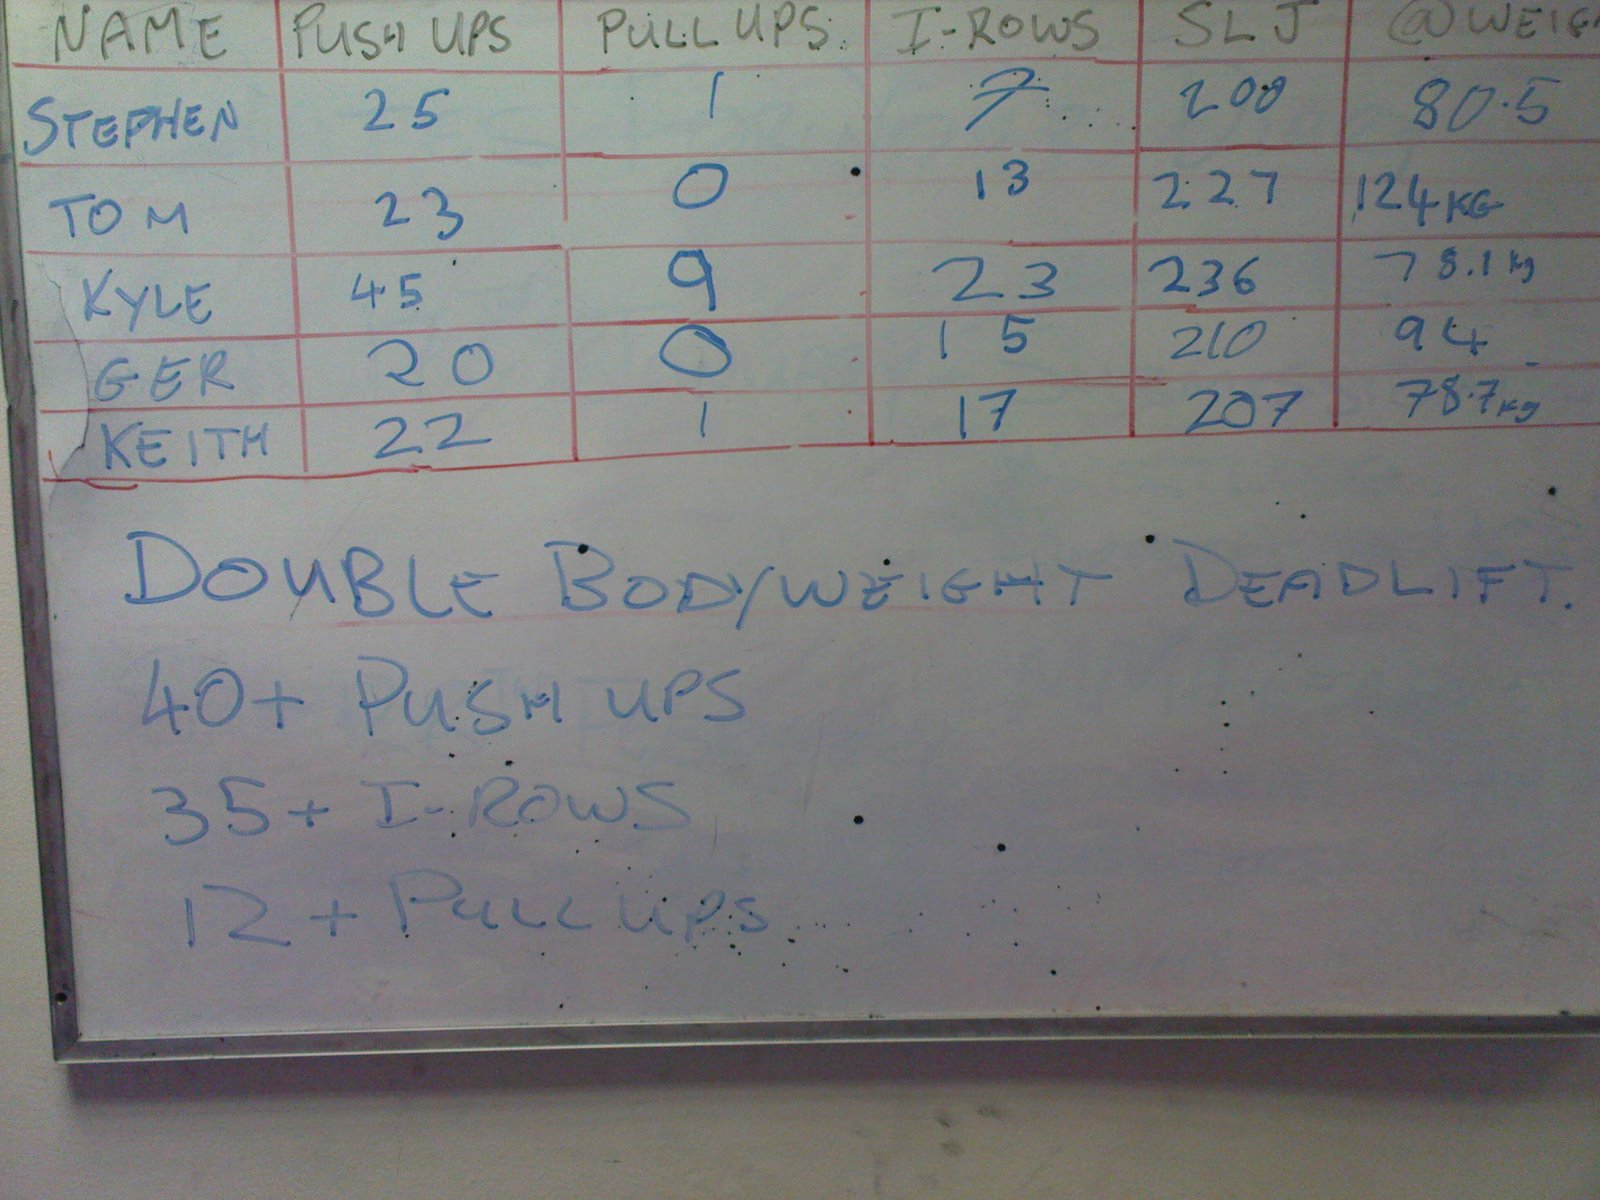 NAME PUSH UPS PULL UPS. I-ROWS SLJ @WEIG
STEPHEN 25 1 7 200 80.5
TOM 23 0 13 227 124KG
KYLE 45 9 23 236 78.1kg
GER 20 0 15 210 94
KEITH 22 1 17 207 78.7kg
DOUBLE BODYWEIGHT DEADLIFT.
40+ PUSH UPS
35+ I-ROWS
12+ PULL UPS